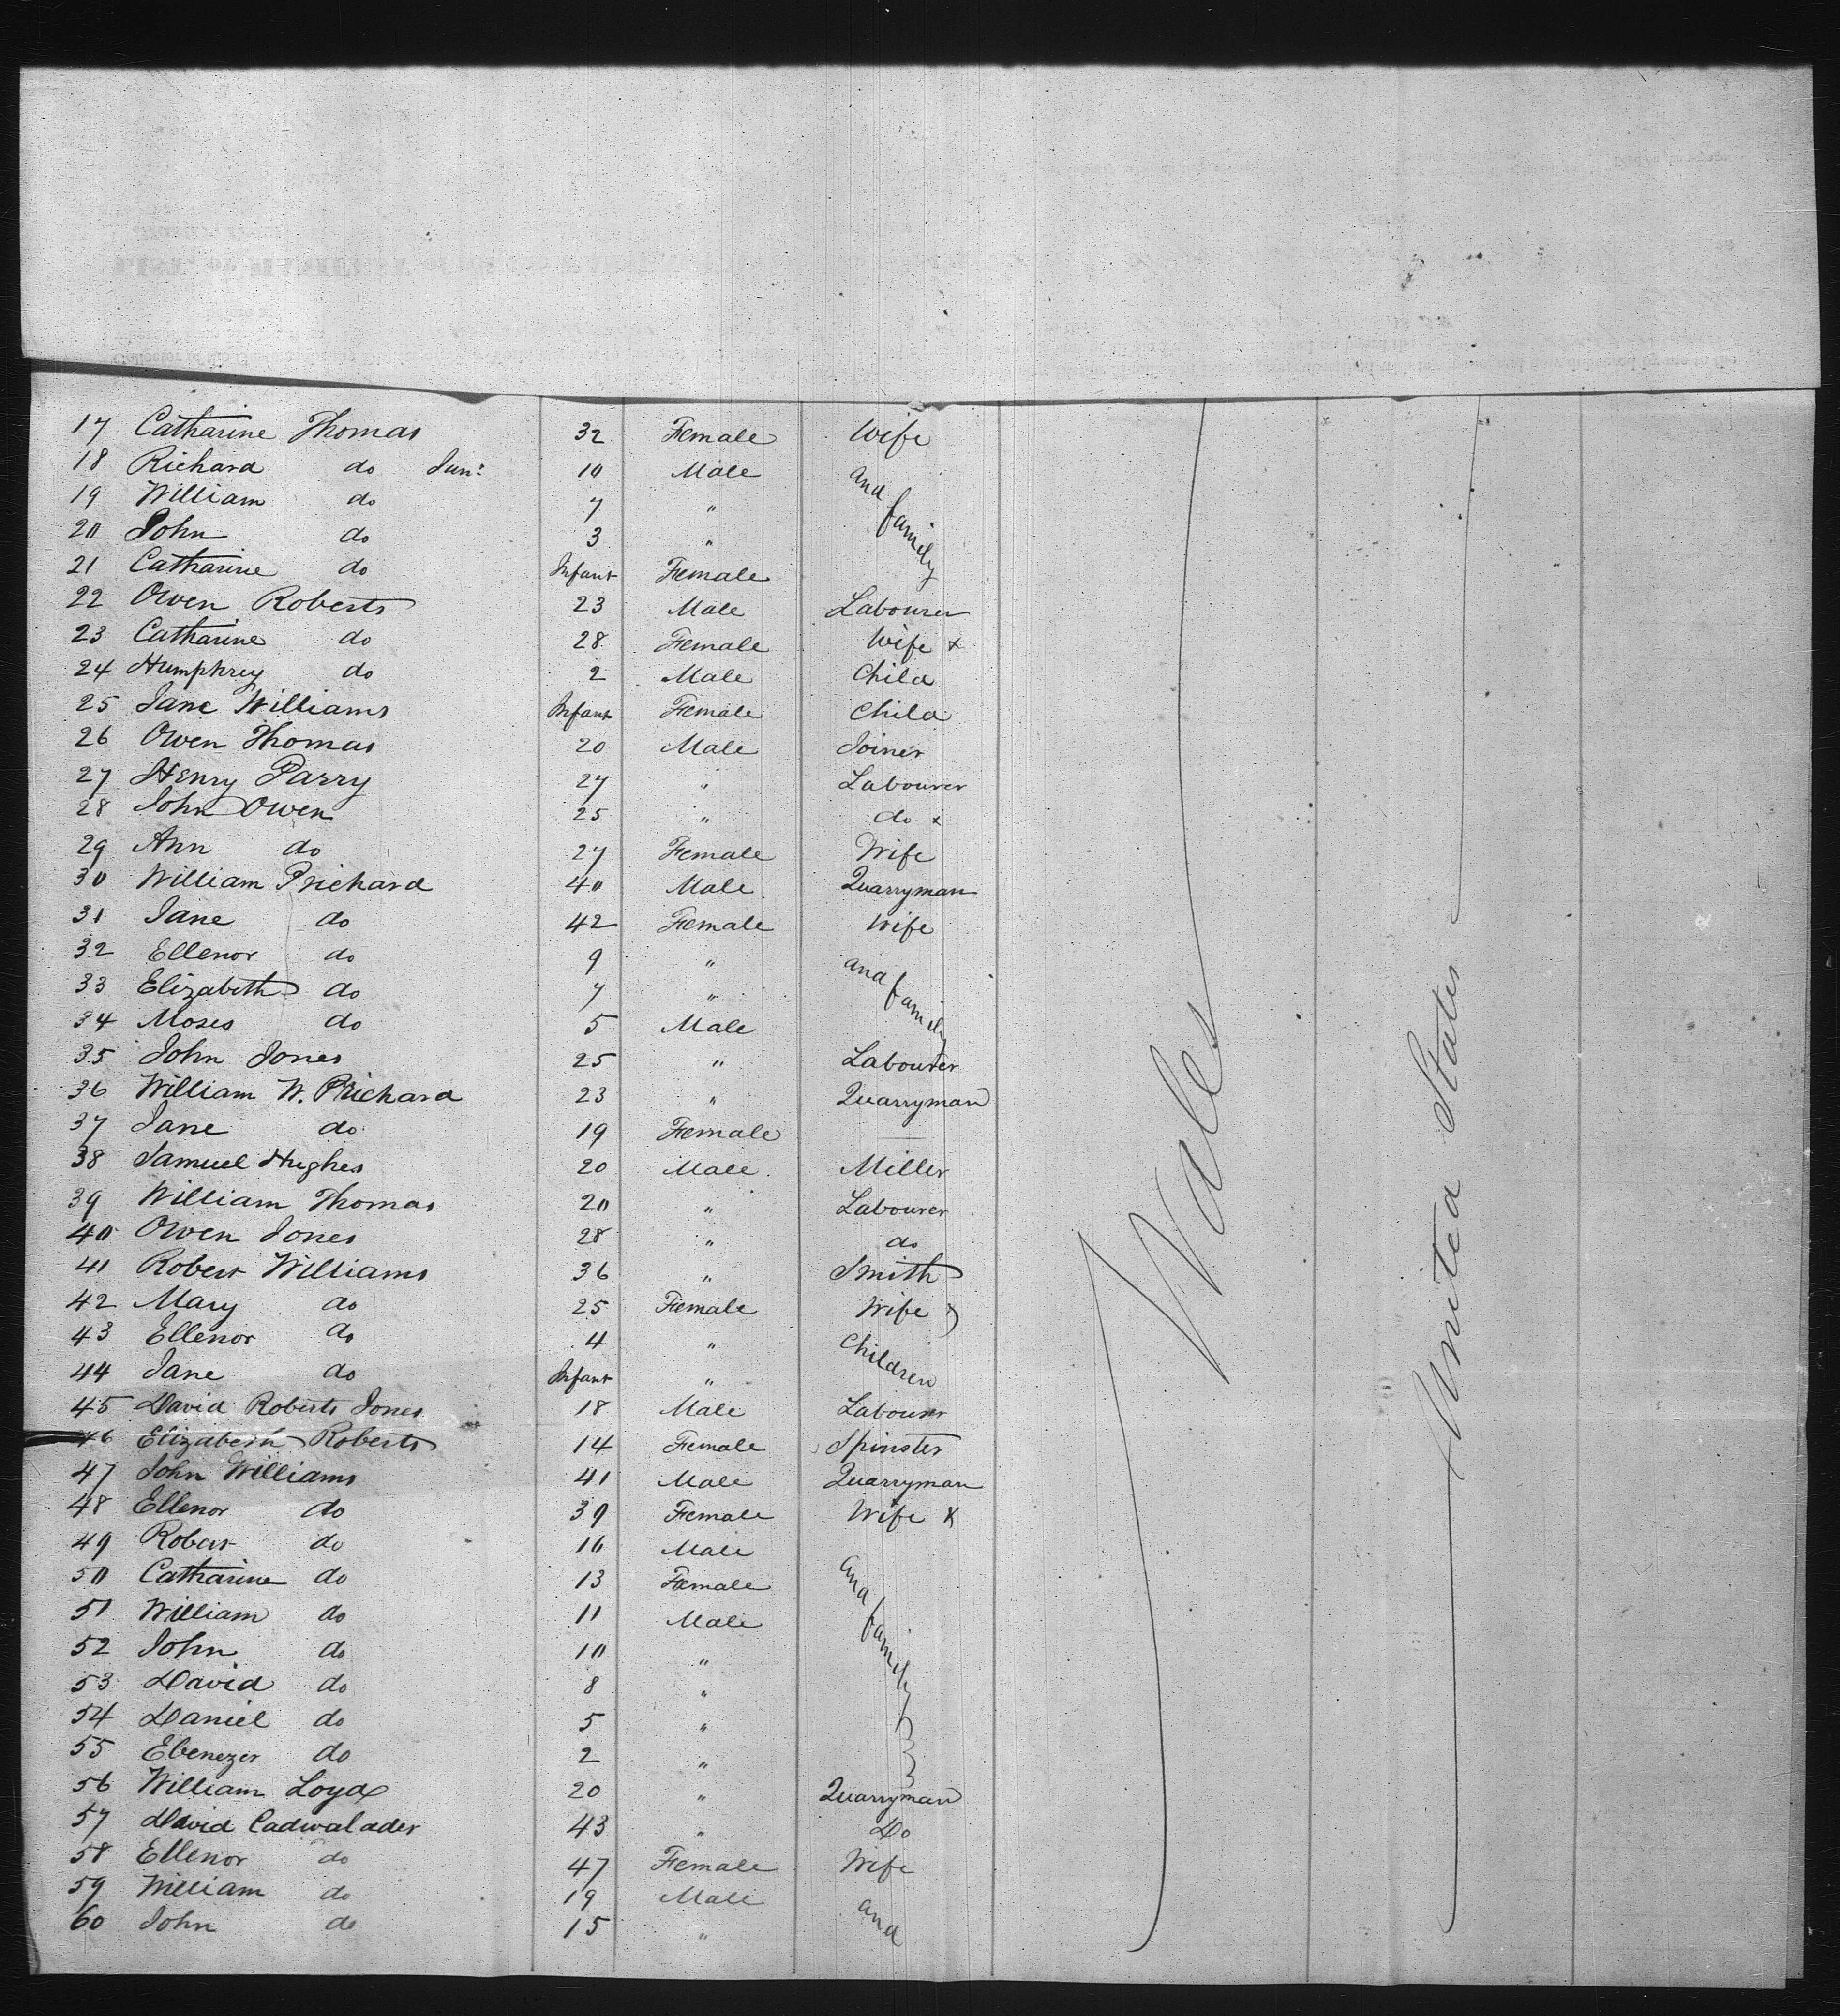 17 Catharine Thomas 32 Female Wife
18 Richard do Junr 10 Male and
19 William do 7 " family
20 John do 3 "
21 Catharine do Infant Female
22 Owen Roberts 23 Male Labourer
23 Catharine do 28 Female Wife &
24 Humphrey do 2 Male Child
25 Jane Williams Infant Female Child
26 Owen Thomas 20 Male Joiner
27 Henry Parry 27 " Labourer
28 John Owen 25 " do &
29 Ann do 27 Female Wife
30 William Prichard 40 Male Quarryman
31 Jane do 42 Female Wife
32 Ellenor do 9 " and
33 Elizabeth do 7 " family
34 Moses do 5 Male
35 John Jones 25 " Labourer
36 William W. Prichard 23 " Quarryman
37 Jane do 19 Female
38 Samuel Hughes 20 Male Miller
39 William Thomas 20 " Labourer
40 Owen Jones 28 " do
41 Robert Williams 36 " Smith
42 Mary do 25 Female Wife &
43 Ellenor do 4 " Children
44 Jane do Infant "
45 David Roberts Jones 18 Male Labourer
46 Elizabeth Roberts 14 Female Spinster
47 John Williams 41 Male Quarryman
48 Ellenor do 39 Female Wife &
49 Robert do 16 Male
50 Catharine do 13 Female and
51 William do 11 Male family
52 John do 10 "
53 David do 8 "
54 Daniel do 5 "
55 Ebenezer do 2 "
56 William Loyd 20 " Quarryman
57 David Cadwalader 43 " Do
58 Ellenor do 47 Female Wife
59 William do 19 Male and
60 John do 15 "
Wales
United States